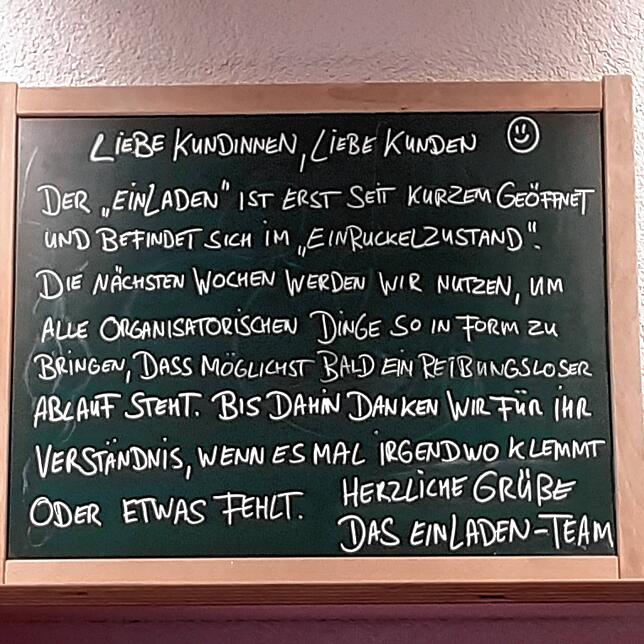 LIEBE KUNDINNEN, LIEBE KUNDEN
DER „EINLADEN" IST ERST SEIT KURZEM GEÖFFNET
UND BEFINDET SICH IM „EINRUCKELZUSTAND".
DIE NÄCHSTEN WOCHEN WERDEN WIR NUTZEN, UM
ALLE ORGANISATORISCHEN DINGE SO IN FORM ZU
BRINGEN, DASS MÖGLICHST BALD EIN REIBUNGSLOSER
ABLAUF STEHT. BIS DAHIN DANKEN WIR FÜR IHR
VERSTÄNDNIS, WENN ES MAL IRGENDWO KLEMMT
ODER ETWAS FEHLT. HERZLICHE GRÜßE
DAS EINLADEN-TEAM